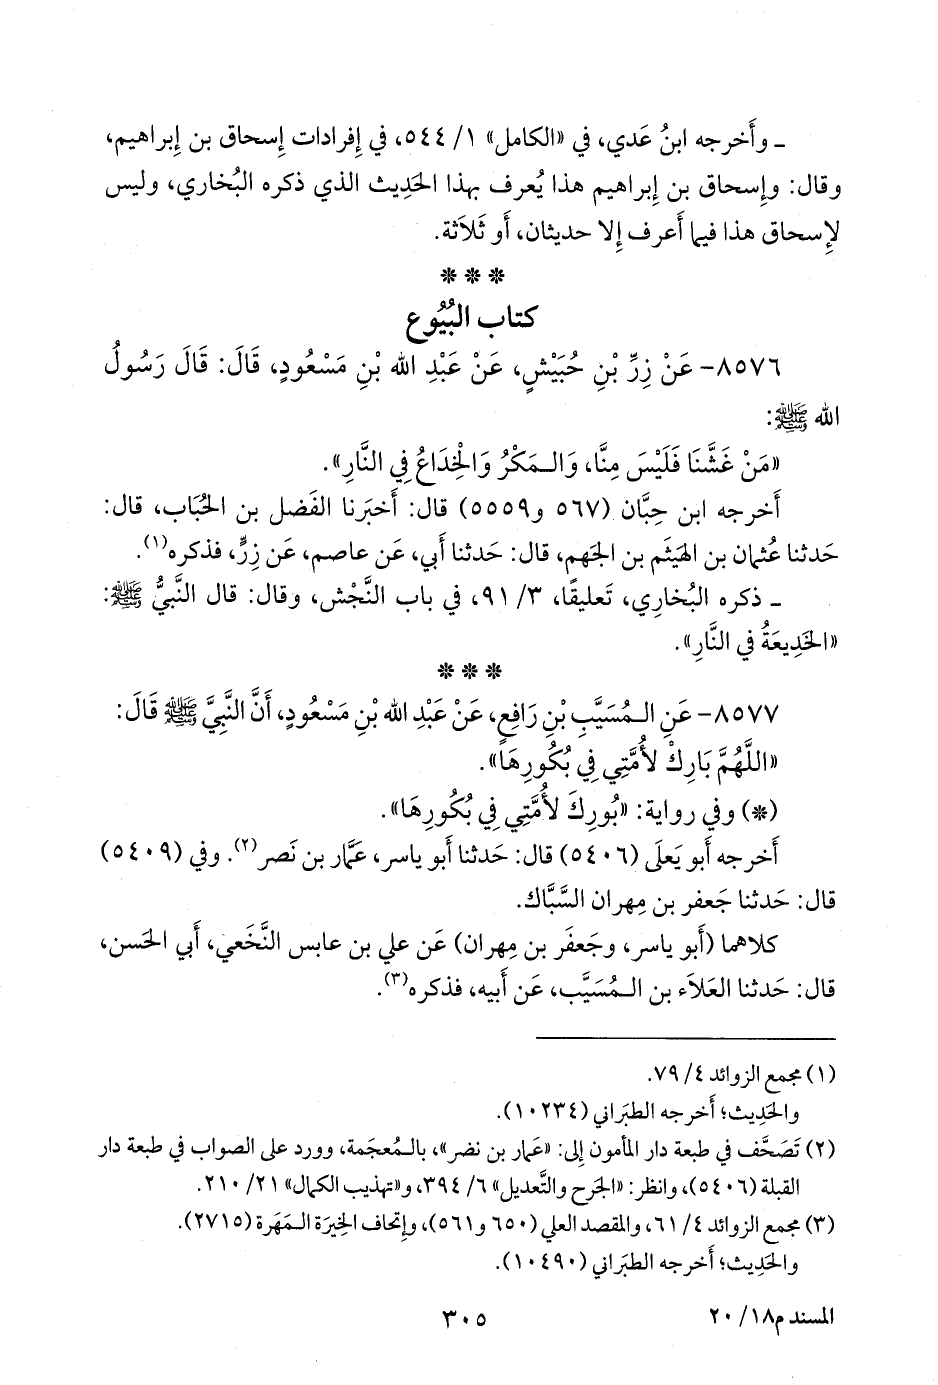 ـ وأَخرجه ابنُ عَدي، في «الكامل» ١/ ٥٤٤، في إِفرادات إِسحاق بن إِبراهيم،
وقال: وإِسحاق بن إِبراهيم هذا يُعرف بهذا الحَدِيث الذي ذكره البُخاري، وليس
لإِسحاق هذا فيما أَعرف إِلا حديثان، أَو ثَلاَثة.
***
كتاب البُيُوع
٨٥٧٦- عَنْ زِرِّ بْنِ حُبَيْشٍ، عَنْ عَبْدِ الله بْنِ مَسْعُودٍ، قَالَ: قَالَ رَسُولُ
الله ﷺ:
«مَنْ غَشَّنَا فَلَيْسَ مِنَّا، وَالـمَكْرُ وَالْخِدَاعُ فِي النَّارِ».
أَخرجه ابن حِبَّان (٥٦٧ و٥٥٥٩) قال: أَخبَرنا الفَضل بن الحُبَاب، قال:
حَدثنا عُثمان بن الهَيثَم بن الجَهم، قال: حَدثنا أَبي، عَن عاصم، عَن زِرٍّ، فذكره(١).
ـ ذكره البُخارِي، تَعليقًا، ٣/ ٩١، في باب النَّجْش، وقال: قال النَّبيُّ ﷺ:
«الخَدِيعَةُ فِي النَّارِ».
***
٨٥٧٧- عَنِ الـمُسَيَّبِ بْنِ رَافِعٍ، عَنْ عَبْدِ الله بْنِ مَسْعُودٍ، أَنَّ النَّبِيَّ ﷺ قَالَ:
«اللَّهُمَّ بَارِكْ لأُمَّتِي فِي بُكُورِهَا».
(*) وفي رواية: «بُورِكَ لأُمَّتِي فِي بُكُورِهَا».
أَخرجه أَبو يَعلَى (٥٤٠٦) قال: حَدثنا أَبو ياسر، عَمَّار بن نَصر(٢). وفي (٥٤٠٩)
قال: حَدثنا جَعفر بن مِهران السَّبَّاك.
كلاهما (أَبو ياسر، وجَعفَر بن مِهران) عَن علي بن عابس النَّخَعي، أَبي الحَسن،
قال: حَدثنا العَلاَء بن الـمُسَيَّب، عَن أَبيه، فذكره(٣).
(١) مجمع الزوائد ٤/ ٧٩.
والحَدِيث؛ أَخرجه الطبَراني (١٠٢٣٤).
(٢) تَصَحَّف في طبعة دار المأمون إِلى: «عَمار بن نضر»، بالـمُعجَمة، وورد على الصواب في طبعة دار
القبلة (٥٤٠٦)، وانظر: «الجَرح والتَّعديل» ٦/ ٣٩٤، و«تهذيب الكمال» ٢١/ ٢١٠.
(٣) مجمع الزوائد ٤/ ٦١، والمقصد العلي (٦٥٠ و٥٦١)، وإِتحاف الخِيرَة الـمَهَرة (٢٧١٥).
والحَدِيث؛ أَخرجه الطبَراني (١٠٤٩٠).
المسند م١٨/ ٢٠
٣٠٥